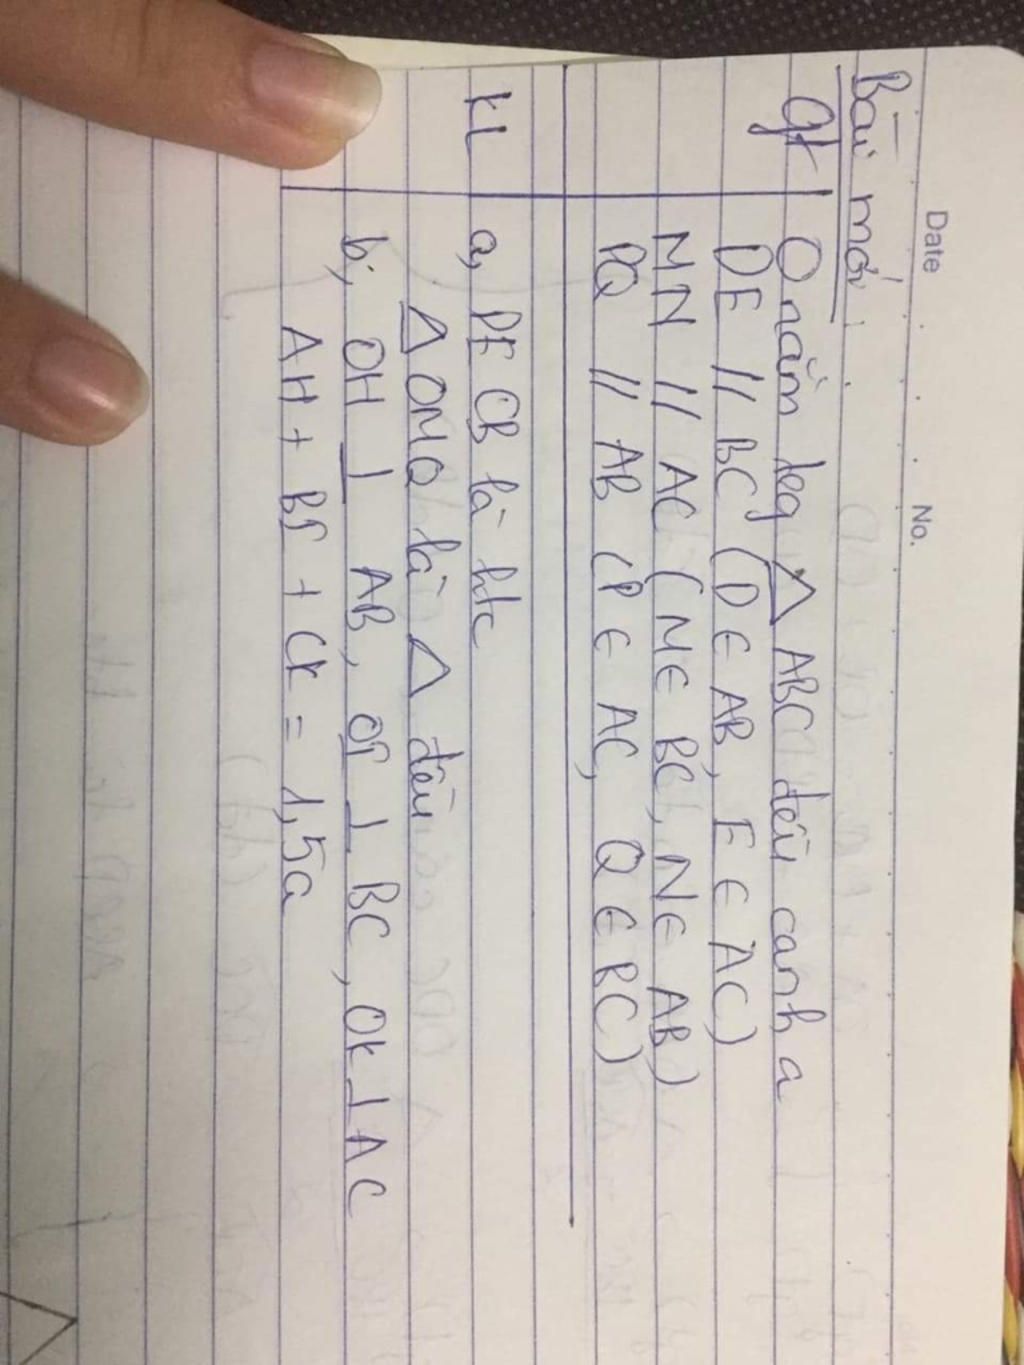 Date No.
Bài mới
gt O nằm trg Δ ABC đều cạnh a
DE // BC (D ∈ AB, E ∈ AC)
MN // AC (M ∈ BC, N ∈ AB)
PQ // AB (P ∈ AC, Q ∈ BC)
KL a, DE CB là htc
Δ OMQ là Δ đều
b, OH ⊥ AB, OI ⊥ BC, OK ⊥ AC
AH + BI + CK = 1,5a